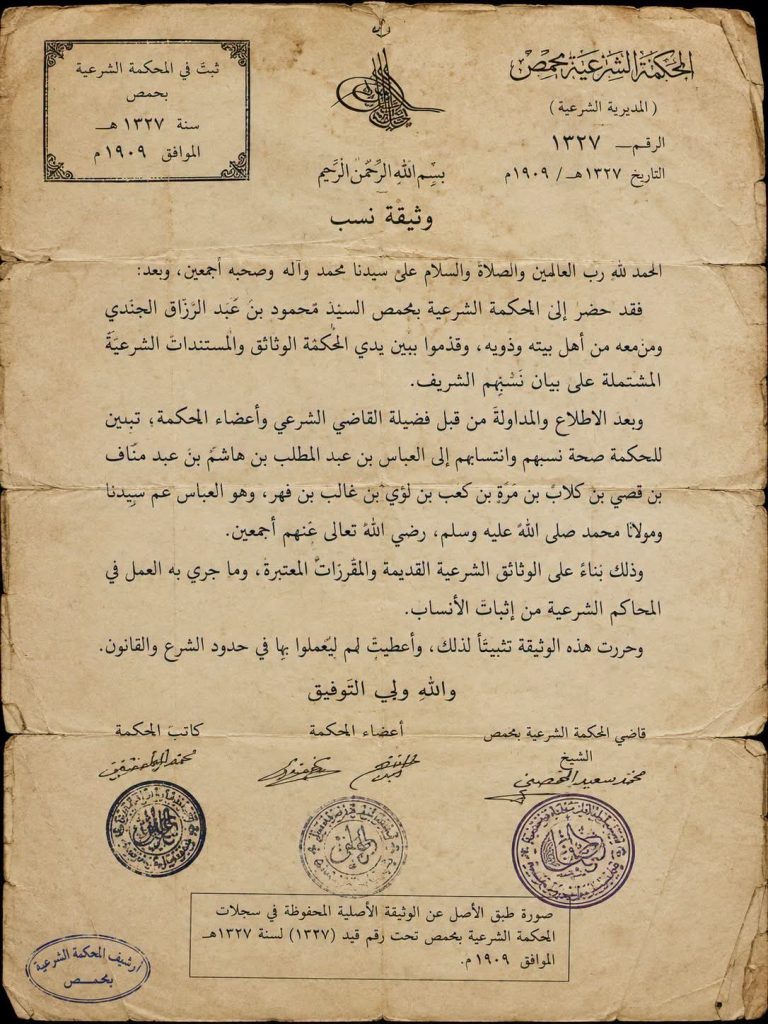 المحكمة الشرعية بحمص
( المديرية الشرعية )
الرقم ١٣٢٧
التاريخ ١٣٢٧هـ / ١٩٠٩م
ثبت في المحكمة الشرعية
بحمص
سنة ١٣٢٧ هـ
الموافق ١٩٠٩ م
بسم الله الرحمن الرحيم
وثيقة نسب
الحمد لله رب العالمين والصلاة والسلام على سيدنا محمد وآله وصحبه أجمعين، وبعد:
فقد حضر إلى المحكمة الشرعية بحمص السيد محمود بن عبد الرزاق الجندي
ومن معه من أهل بيته وذويه، وقدموا ببين يدي الحكمة الوثائق والمستندات الشرعية
المشتملة على بيان نسبهم الشريف.
وبعد الاطلاع والمداولة من قبل فضيلة القاضي الشرعي وأعضاء المحكمة، تبين
للحكمة صحة نسبهم وانتسابهم إلى العباس بن عبد المطلب بن هاشم بن عبد مناف
بن قصي بن كلاب بن مرة بن كعب بن لؤي بن غالب بن فهر، وهو العباس عم سيدنا
ومولانا محمد صلى الله عليه وسلم، رضي الله تعالى عنهم أجمعين.
وذلك بناءً على الوثائق الشرعية القديمة والمقررات المعتبرة، وما جري به العمل في
المحاكم الشرعية من إثبات الأنساب.
وحررت هذه الوثيقة تثبيتاً لذلك، وأعطيت لهم ليعملوا بها في حدود الشرع والقانون.
والله ولي التوفيق
قاضي الحكمة الشرعية بحمص
الشيخ
أعضاء المحكمة
كاتب المحكمة
صورة طبق الأصل عن الوثيقة الأصلية المحفوظة في سجلات
المحكمة الشرعية بحمص تحت رقم قيد (١٣٢٧) لسنة ١٣٢٧هـ
الموافق ١٩٠٩ م.
أرشيف المحكمة الشرعية
بحمص